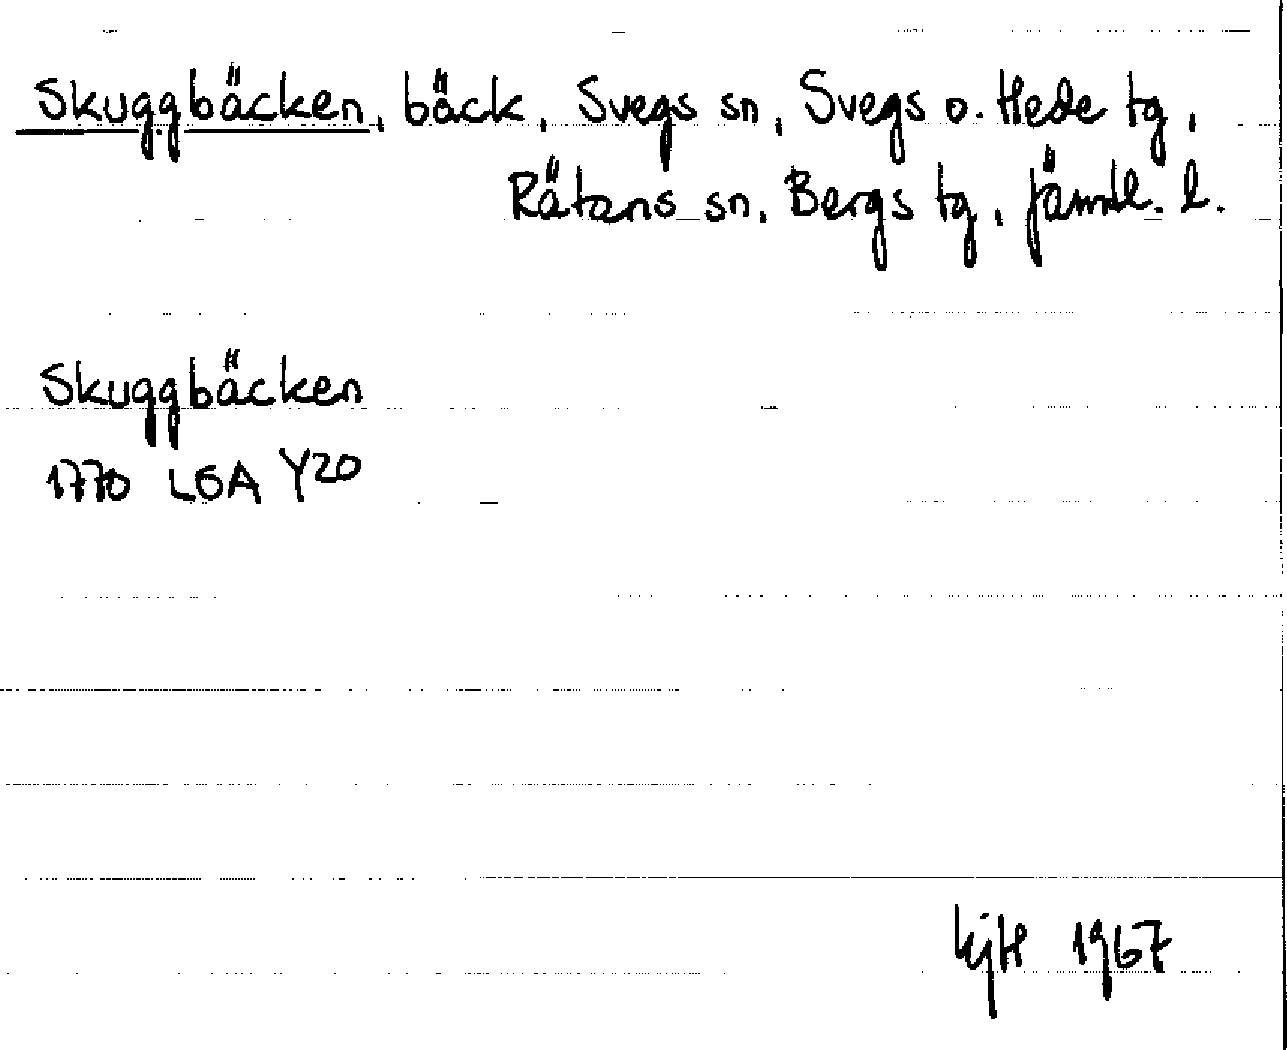 Skuggbäcken, bäck, Svegs sn, Svegs o. Hede tg,
Rätans sn, Bergs tg, Jämtl. l.
Skuggbäcken
1770 LSA Y20
KjH 1967